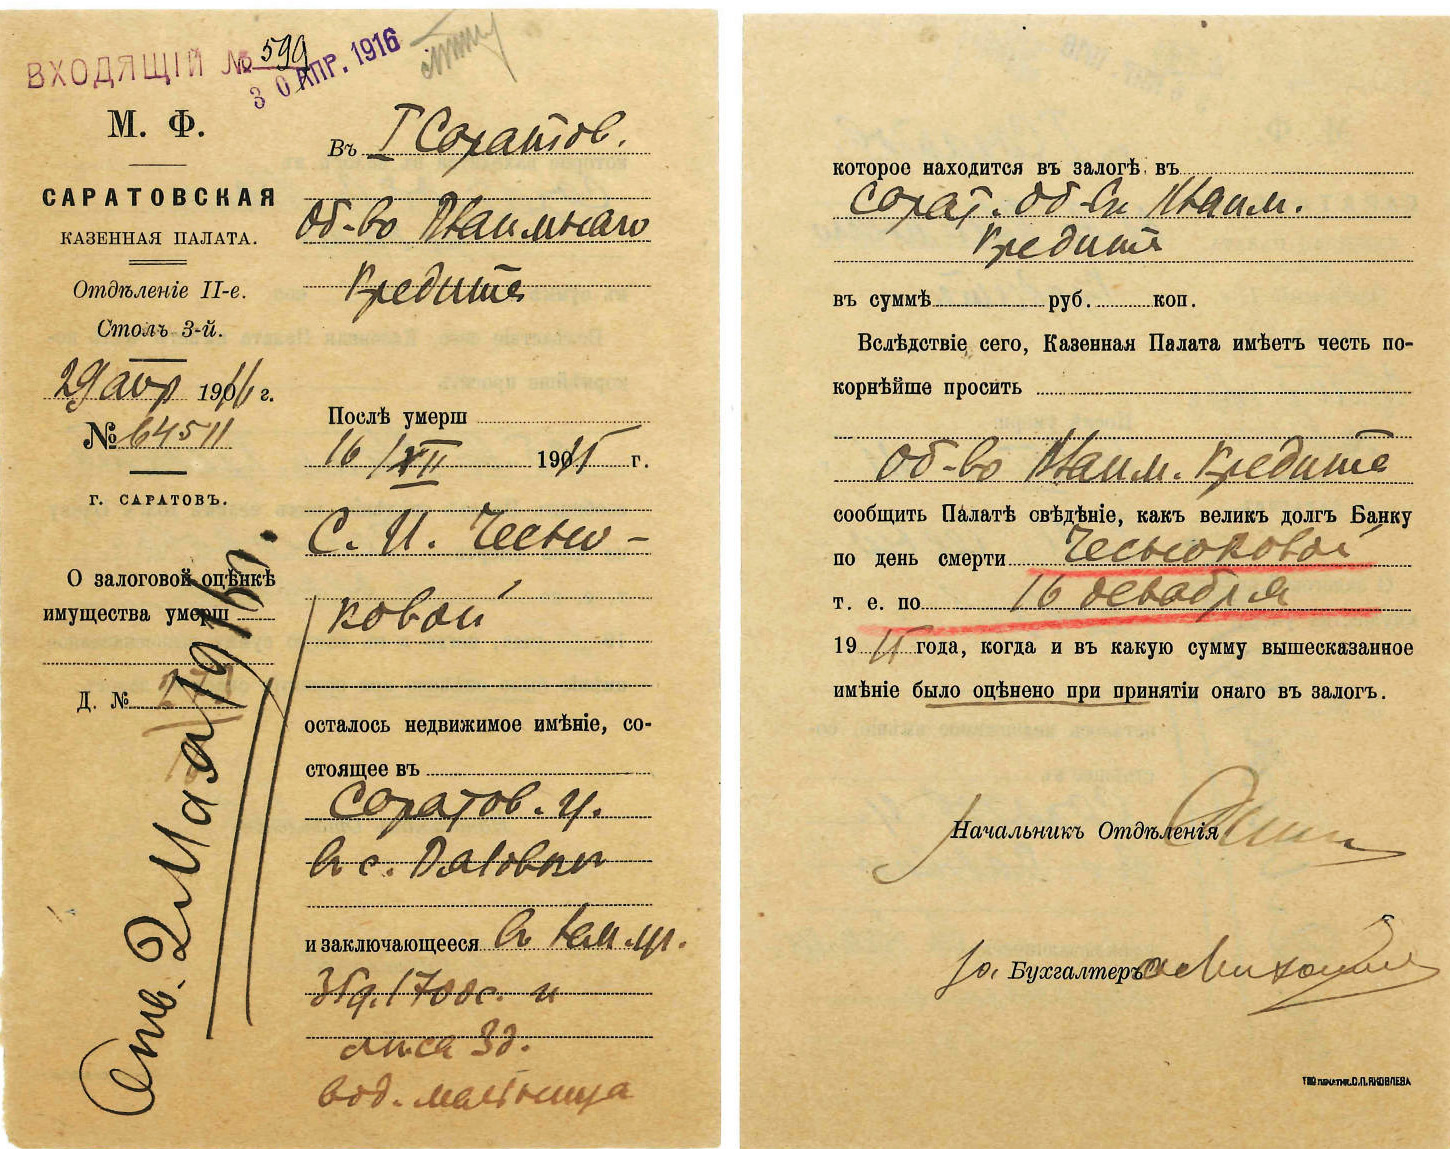 ВХОДЯЩІЙ № 599
30 АПР. 1916
М. Ф.
САРАТОВСКАЯ
КАЗЕННАЯ ПАЛАТА.
Отдѣленіе II-е.
Столъ 3-й.
29 апр 1916 г.
№ 64511
г. САРАТОВЪ.
О залоговой оцѣнкѣ
имущества умерш
Д. №
Отв. 2 Мая 1916 г.
Въ I Саратов.
Об-во Взаимнаго
Кредита
Послѣ умерш
16/XII 1915 г.
С. И. Чесно-
ковой
осталось недвижимое имѣніе, со-
стоящее въ
Саратов. у.
въ с.
и заключающееся въ
и
лѣса 3 д.
вод. мельница
которое находится въ залогѣ въ
Сарат. Об-вѣ Взаим.
Кредита
въ суммѣ руб. коп.
Вслѣдствіе сего, Казенная Палата имѣетъ честь по-
корнѣйше просить
Об-во Взаим. Кредита
сообщить Палатѣ свѣдѣніе, какъ великъ долгъ Банку
по день смерти Чесноковой
т. е. по 16 декабря
19 15 года, когда и въ какую сумму вышесказанное
имѣніе было оцѣнено при принятіи онаго въ залогъ.
Начальникъ Отдѣленія
Бухгалтеръ
Т-во печатн. С.П. ЯКОВЛЕВА